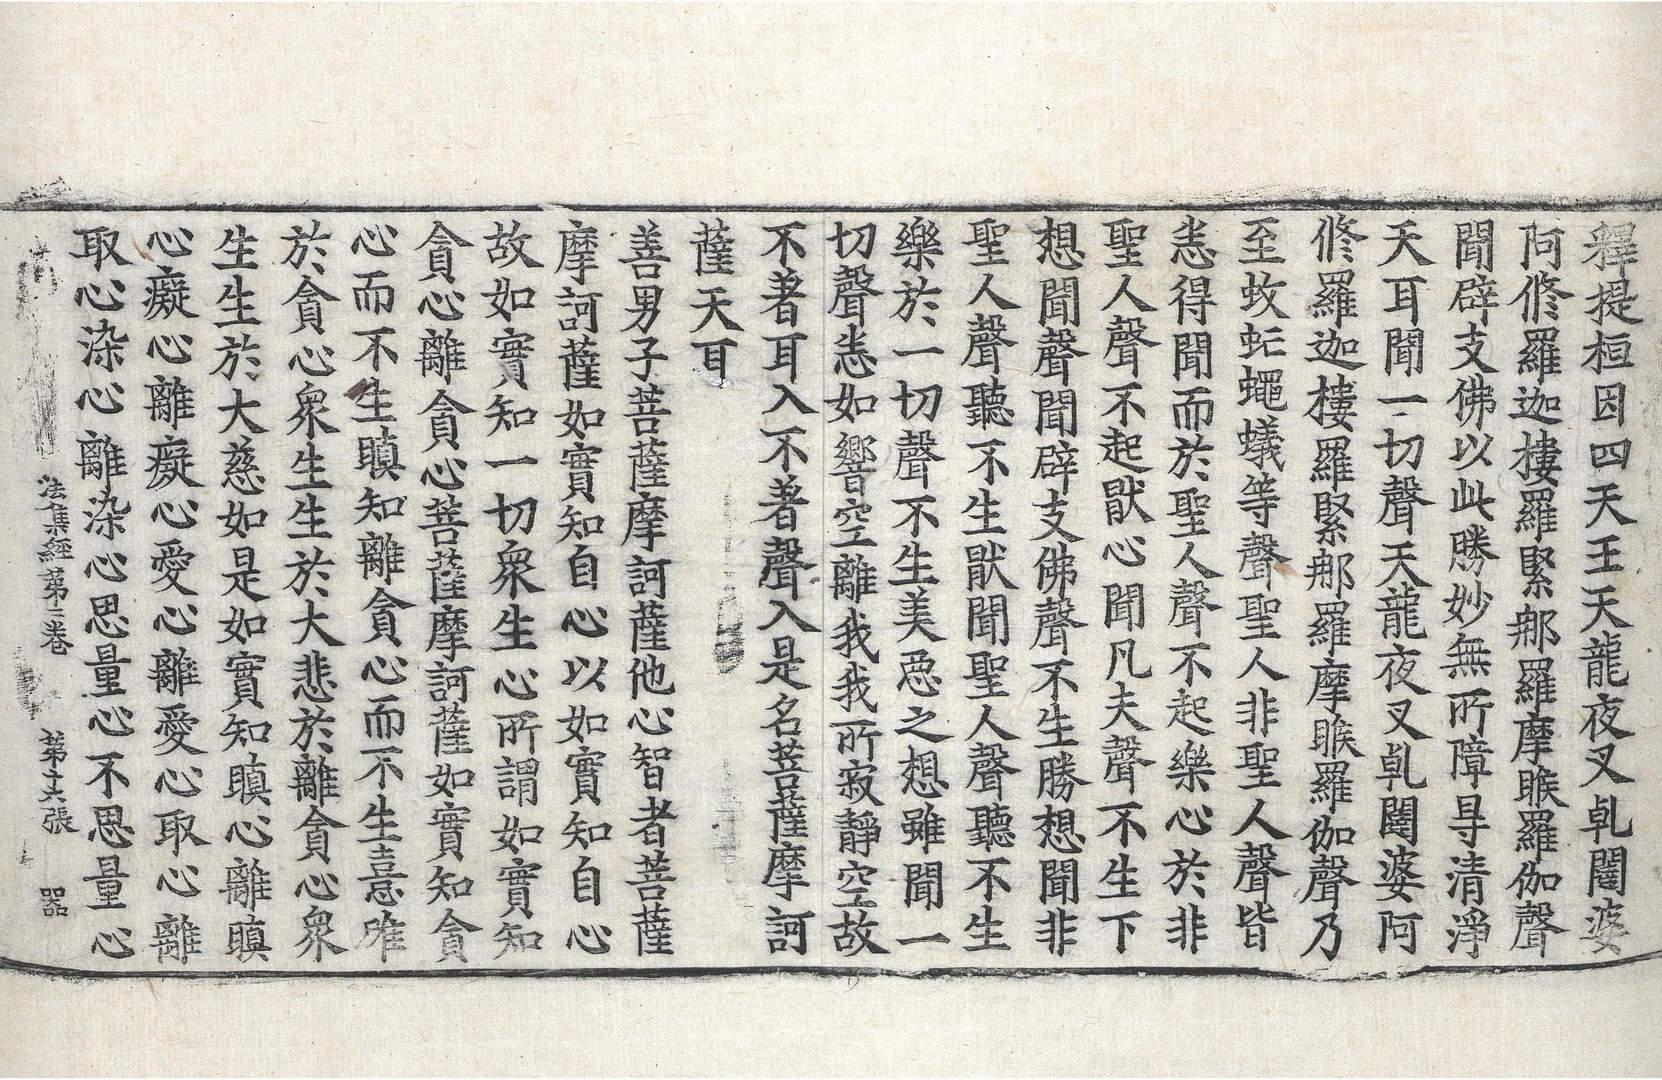 釋提桓因四天王天龍夜叉乹闥婆
阿修羅迦樓羅緊那羅摩睺羅伽聲
聞辟支佛以此勝妙無所障导清淨
天耳聞一切聲天龍夜叉乹闥婆阿
修羅迦樓羅緊那羅摩睺羅伽聲乃
至蚊虻蠅蟻等聲聖人非聖人聲皆
悉得聞而於聖人聲不起樂心於非
聖人聲不起猒心聞凡夫聲不生下
想聞聲聞辟支佛聲不生勝想聞非
聖人聲聽不生猒聞聖人聲聽不生
樂於一切聲不生美惡之想雖聞一
切聲悉如響空離我我所寂靜空故
不著耳入不著聲入是名菩薩摩訶
薩天耳
善男子菩薩摩訶薩他心智者菩薩
摩訶薩如實知自心以如實知自心
故如實知一切衆生心所謂如實知
貪心離貪心菩薩摩訶薩如實知貪
心而不生瞋知離貪心而不生憙唯
於貪心衆生生於大悲於離貪心衆
生生於大慈如是如實知瞋心離瞋
心癡心離癡心愛心離愛心取心離
取心染心離染心思量心不思量心
法集經第三卷 第十六張 器